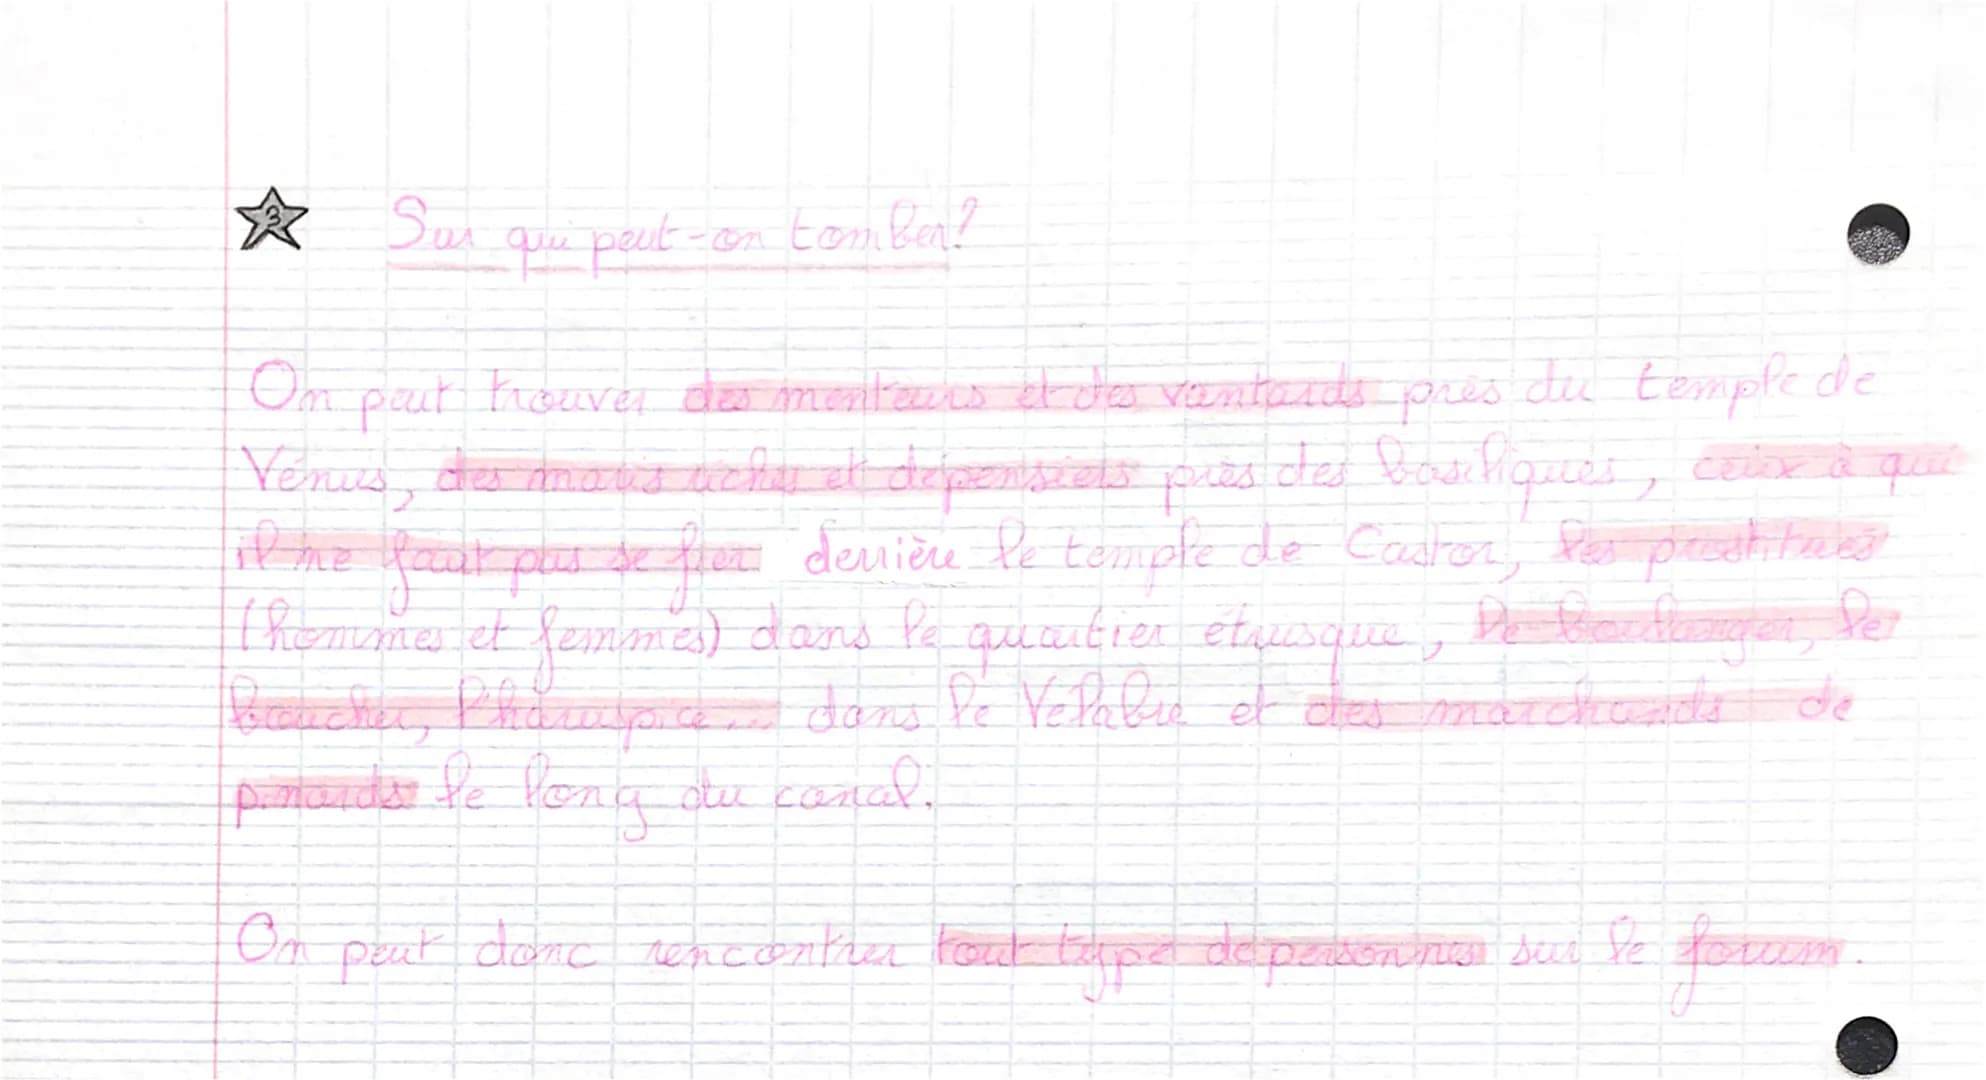 3 Sur qui peut-on tomber?
On peut trouver des menteurs et des vantards près du temple de
Vénus, des maris riches et dépensiers près des basiliques, ceux à qui
il ne faut pas se fier derrière le temple de Castor, les prostitués
(hommes et femmes) dans le quartier étrusque, le boulanger, le
boucher, l'haruspice... dans le Vélabre et des marchands de
pinards le long du canal.
On peut donc rencontrer tout type de personnes sur le forum.